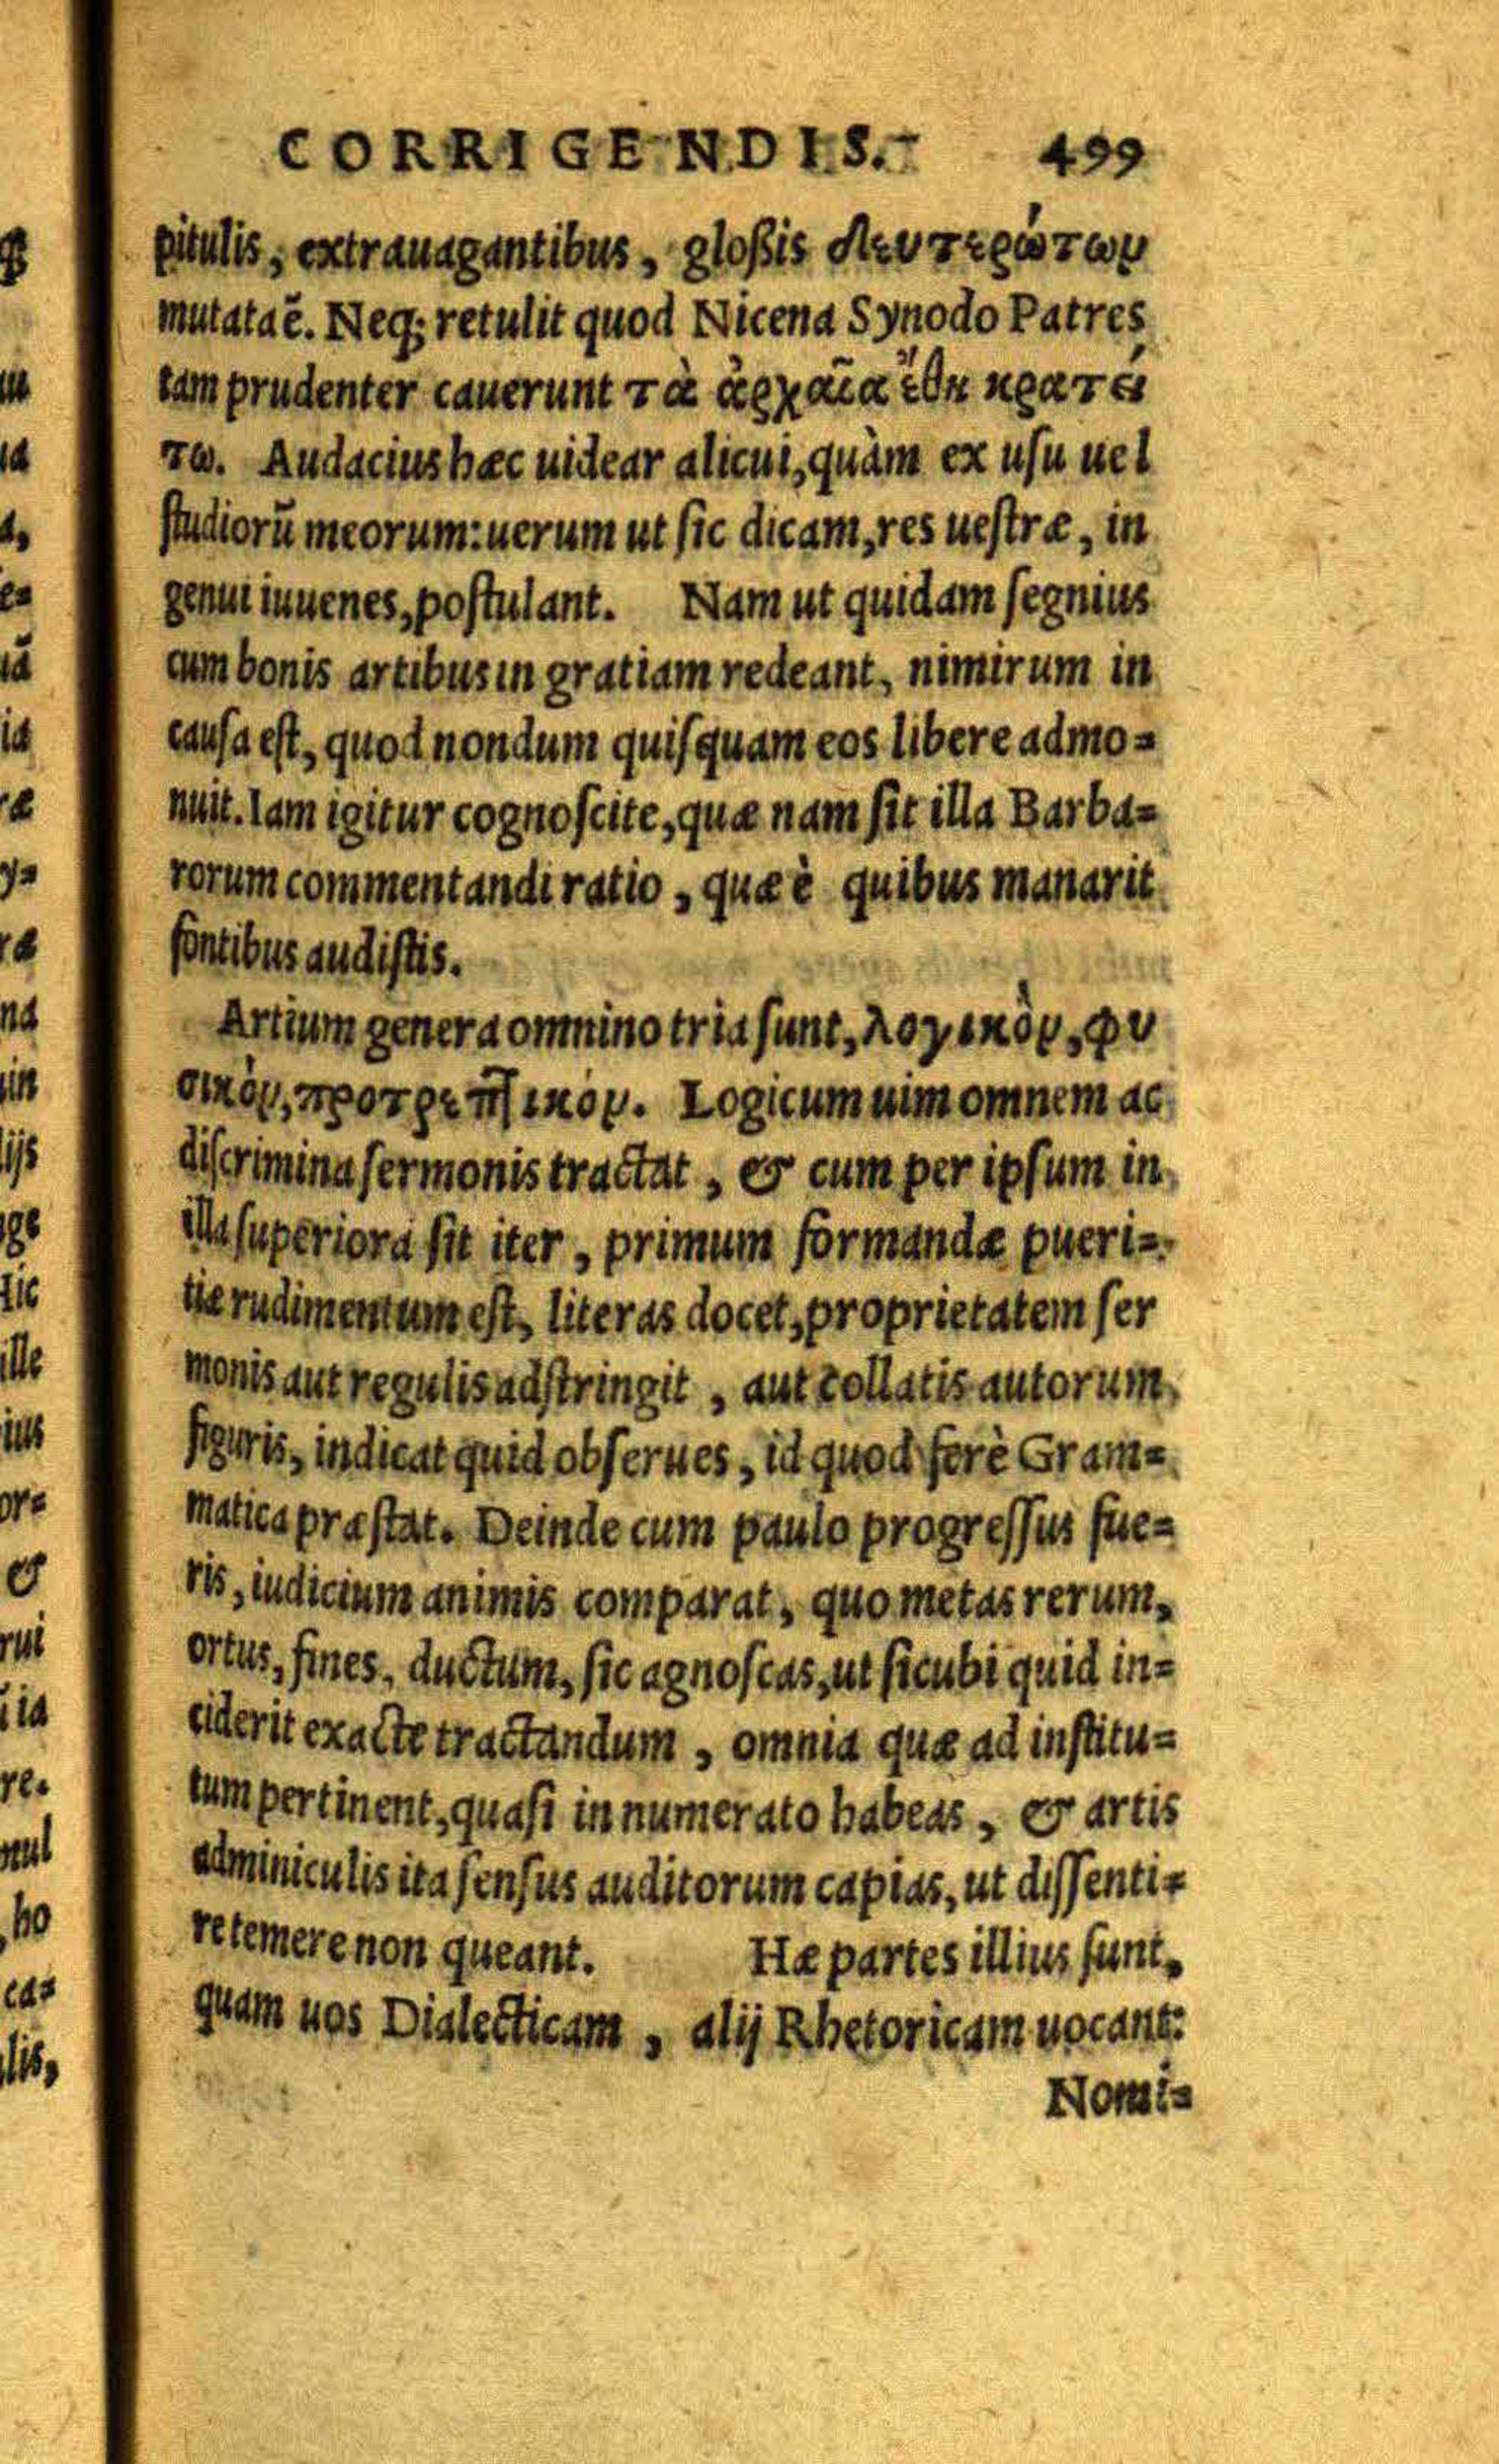 CORRIGENDIS. 499
pitulis, extrauagantibus, gloßis δευτερώτωυ
mutata ē. Neq; retulit quod Nicena Synodo Patres
tam prudenter cauerunt τὰ ἀρχαῖα ἔθη κρατεί
τω. Audacius hæc uidear alicui, quàm ex usu uel
ſtudiorū meorum: uerum ut ſic dicam, res ueſtræ, in
genui iuuenes, poſtulant. Nam ut quidam ſegnius
cum bonis artibus in gratiam redeant, nimirum in
cauſa eſt, quod nondum quiſquam eos libere admo=
nuit. Iam igitur cognoſcite, quæ nam ſit illa Barba=
rorum commentandi ratio, quæ è quibus manarit
fontibus audiſtis.
Artium genera omnino tria ſunt, λογικὸν, φυ
σικὸν, προτρεπτικόν. Logicum uim omnem ac
diſcrimina ſermonis tractat, & cum per ipſum in
illa ſuperiora ſit iter, primum formandæ pueri=
tiæ rudimentum eſt, literas docet, proprietatem ſer
monis aut regulis adſtringit, aut collatis autorum
figuris, indicat quid obſerues, id quod ferè Gram=
matica præſtat. Deinde cum paulo progreſſus fue=
ris, iudicium animis comparat, quo metas rerum,
ortus, fines, ductum, ſic agnoſcas, ut ſicubi quid in=
ciderit exacte tractandum, omnia quæ ad inſtitu=
tum pertinent, quaſi in numerato habeas, & artis
adminiculis ita ſenſus auditorum capias, ut diſſenti=
re temere non queant. Hæ partes illius ſunt,
quam uos Dialecticam, alij Rhetoricam uocant:
Nomi=